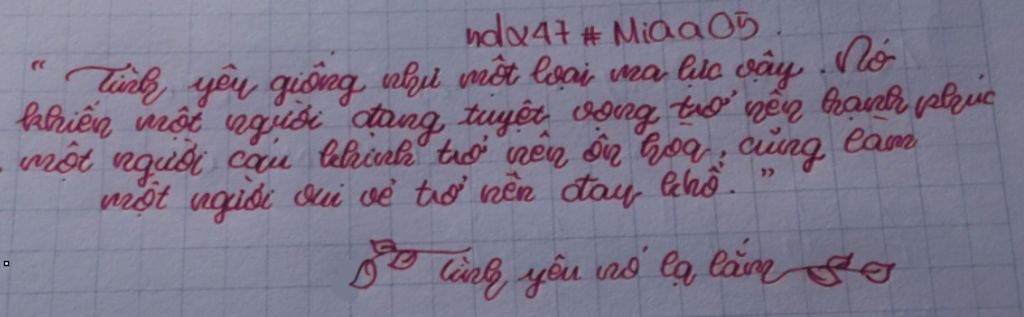 ndx47 # MiaaO5.
“ Tình yêu giống như một loại ma lực vậy. Nó
khiến một người đang tuyệt vọng trở nên hạnh phúc
một người cáu khỉnh trở nên ôn hòa, cũng làm
một người vui vẻ trở nên đau khổ. ”
Tình yêu nó lạ lắm